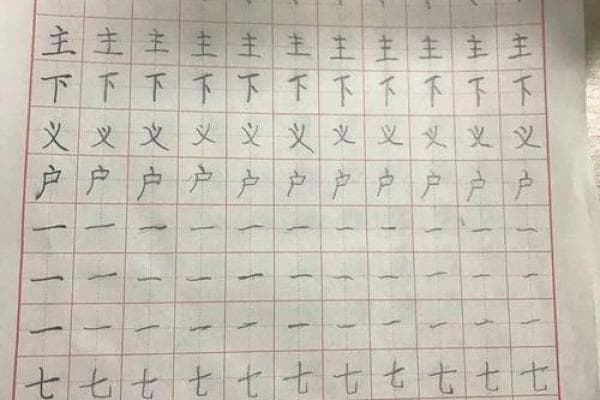 主主主主主主主主主主主
下下下下下下下下下下下
义义义义义义义义义义义
户户户户户户户户户户户
一一一一一一一一一一一
一一一一一一一一一一一
一一一一一一一一一一一
七七七七七七七七七七七